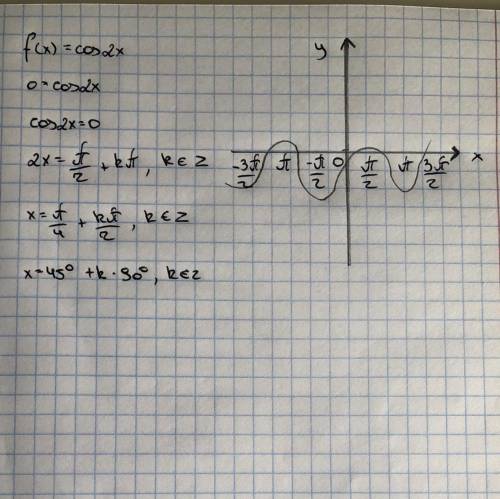 f(x) = cos2x
0 = cos2x
cos2x = 0
2x = π/2 + kπ, k ∈ Z
x = π/4 + kπ/2, k ∈ Z
x = 45° + k · 90°, k ∈ Z
y
-3π/2 π -π/2 0 π/2 π 3π/2 x